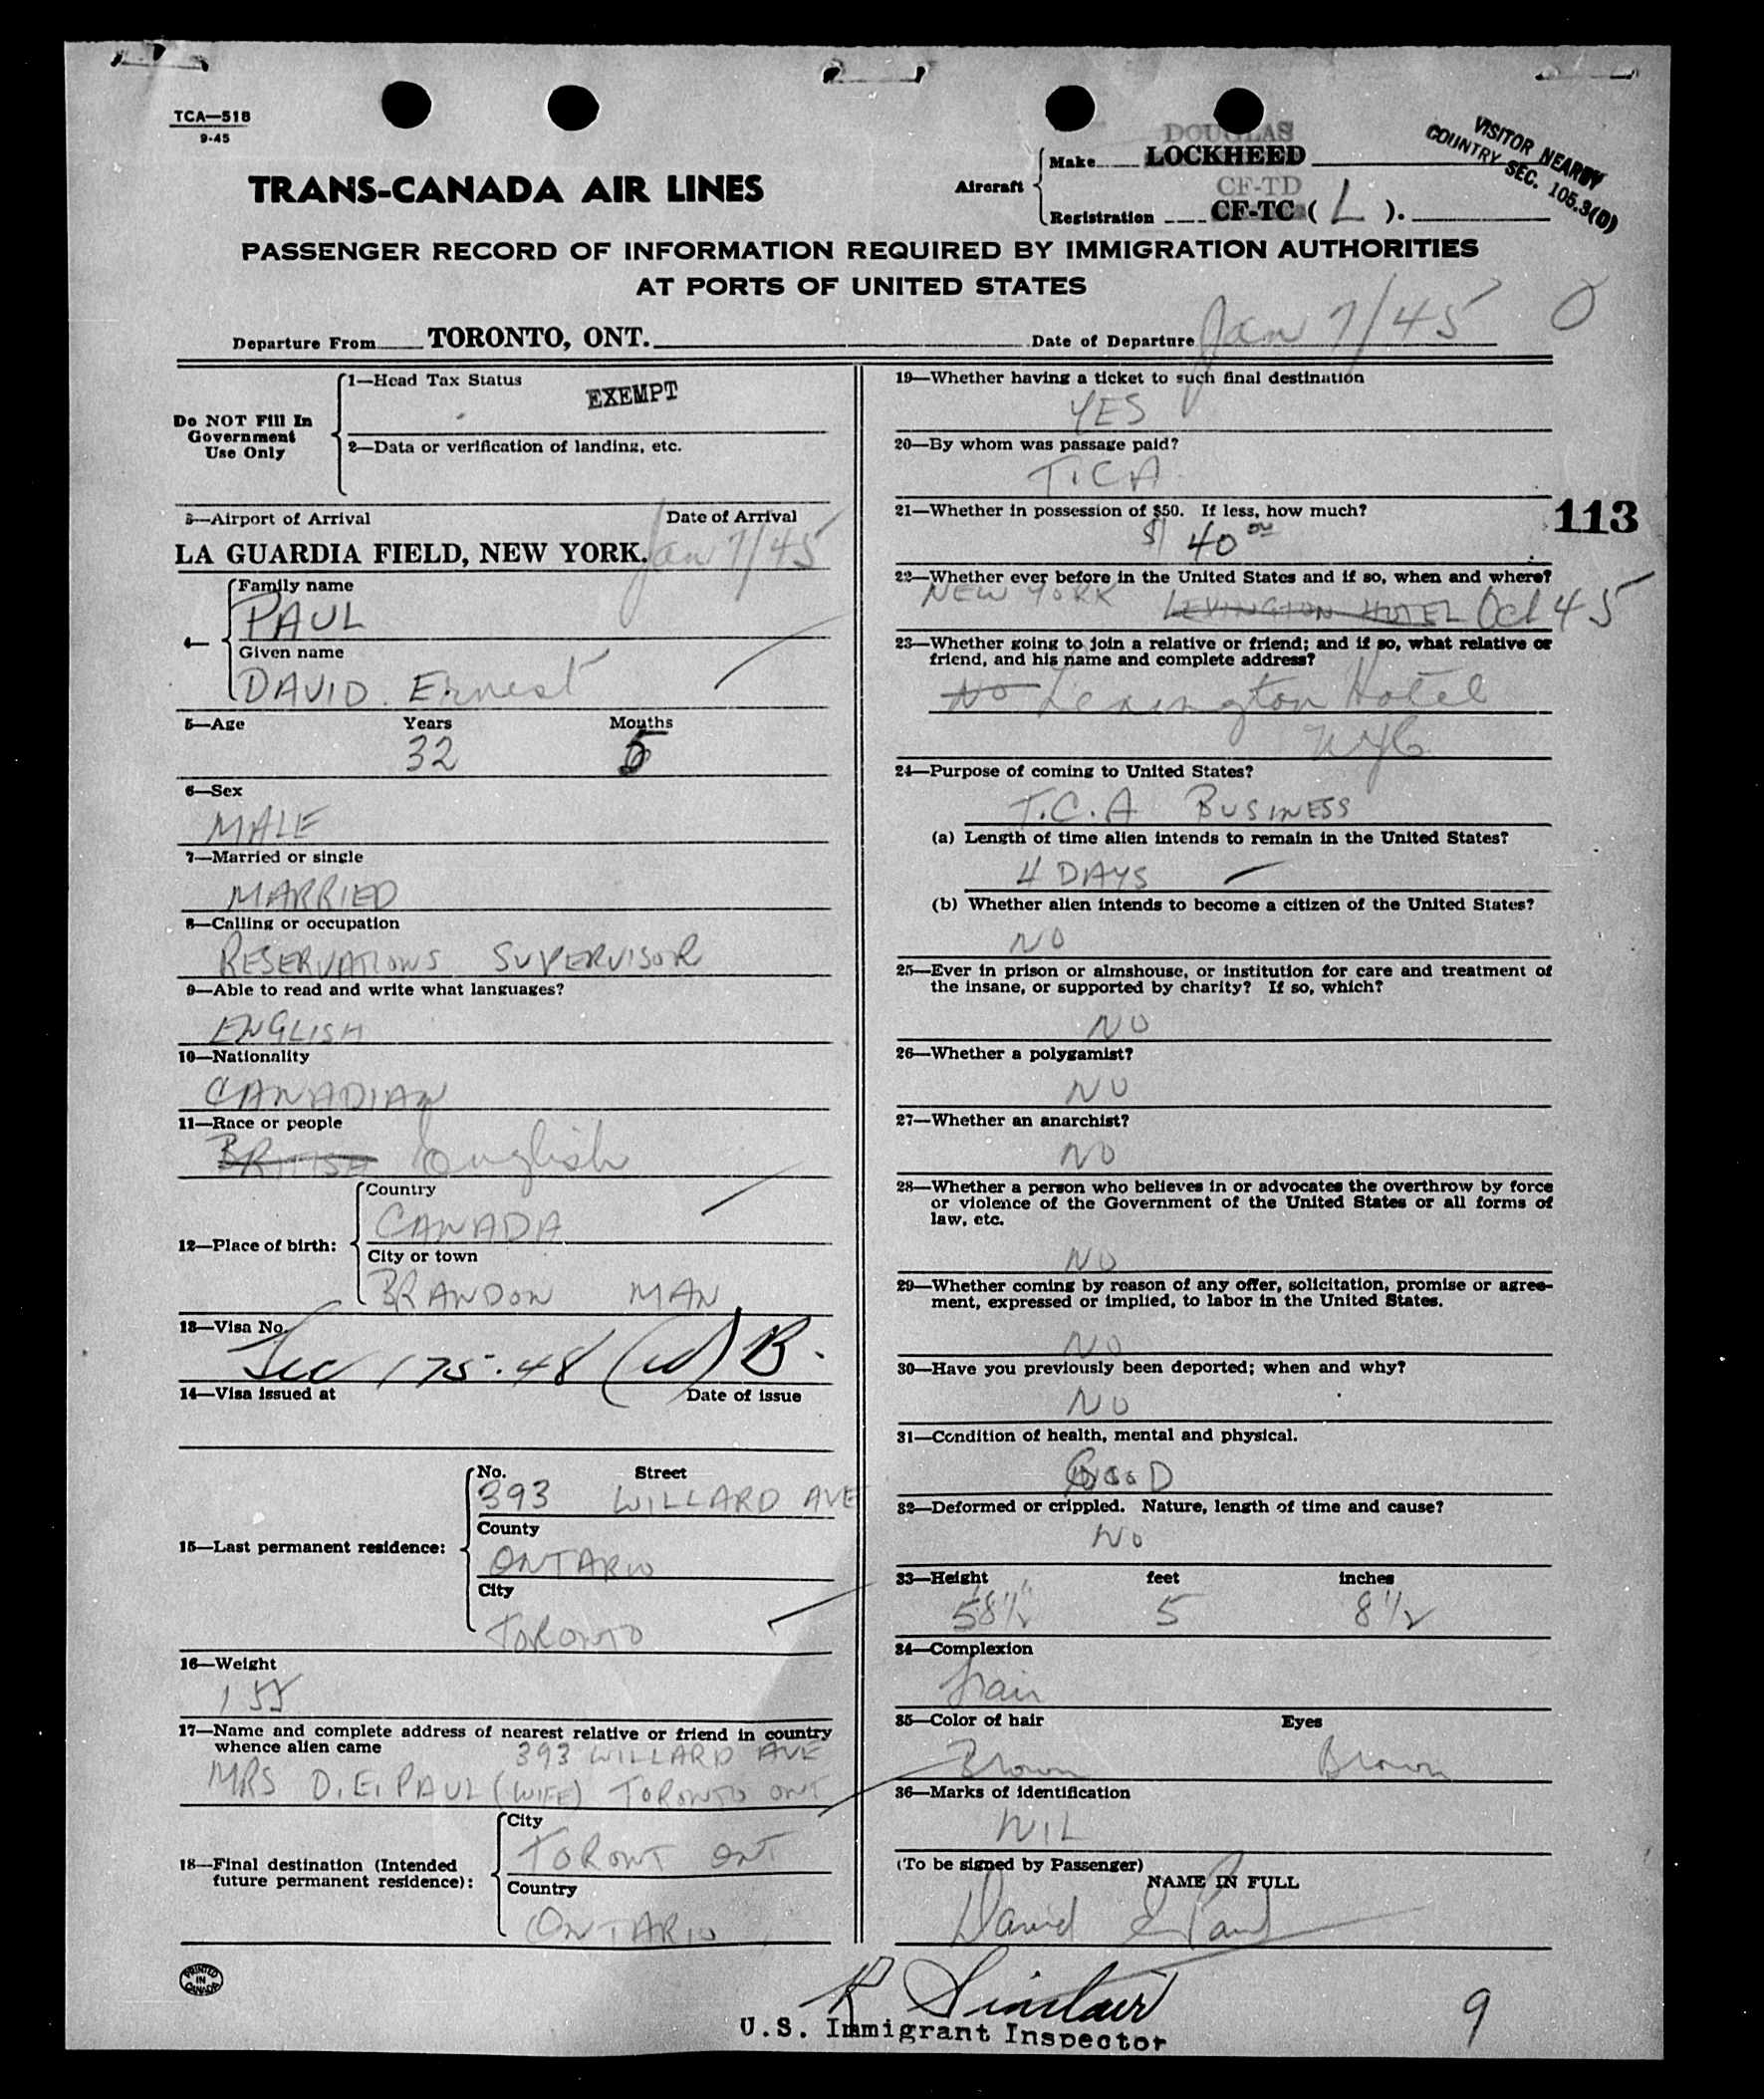 TCA—518
9-45
TRANS-CANADA AIR LINES
Aircraft
Make
DOUGLAS
LOCKHEED
CF-TD
Registration CF-TC ( L ).
VISITOR NEARBY
COUNTRY SEC. 105.3(D)
PASSENGER RECORD OF INFORMATION REQUIRED BY IMMIGRATION AUTHORITIES
AT PORTS OF UNITED STATES
Departure From TORONTO, ONT.
Date of Departure Jan 7/45
Do NOT Fill In
Government
Use Only
1—Head Tax Status
EXEMPT
2—Data or verification of landing, etc.
3—Airport of Arrival Date of Arrival
LA GUARDIA FIELD, NEW YORK. Jan 7/45
4—
Family name
PAUL
Given name
DAVID. Ernest
5—Age Years Months
32 5
6—Sex
MALE
7—Married or single
MARRIED
8—Calling or occupation
RESERVATIONS SUPERVISOR
9—Able to read and write what languages?
ENGLISH
10—Nationality
CANADIAN
11—Race or people
BRITISH English
12—Place of birth:
Country
CANADA
City or town
BRANDON MAN
13—Visa No.
Sec 175.48 (d) B.
14—Visa issued at Date of issue
15—Last permanent residence:
No. Street
393 WILLARD AVE
County
ONTARIO
City
TORONTO
16—Weight
155
17—Name and complete address of nearest relative or friend in country
whence alien came
393 WILLARD AVE
MRS D.E. PAUL (WIFE) TORONTO ONT
18—Final destination (Intended
future permanent residence):
City
TORONT ONT
Country
ONTARIO
PRINTED
IN
CANADA
19—Whether having a ticket to such final destination
YES
20—By whom was passage paid?
T.C.A.
21—Whether in possession of $50. If less, how much?
$ 40 00
113
22—Whether ever before in the United States and if so, when and where?
NEW YORK LEXINGTON HOTEL Oct 45
23—Whether going to join a relative or friend; and if so, what relative or
friend, and his name and complete address?
NO Lexington Hotel
NYC
24—Purpose of coming to United States?
T.C.A BUSINESS
(a) Length of time alien intends to remain in the United States?
4 DAYS
(b) Whether alien intends to become a citizen of the United States?
NO
25—Ever in prison or almshouse, or institution for care and treatment of
the insane, or supported by charity? If so, which?
NO
26—Whether a polygamist?
NO
27—Whether an anarchist?
NO
28—Whether a person who believes in or advocates the overthrow by force
or violence of the Government of the United States or all forms of
law, etc.
NO
29—Whether coming by reason of any offer, solicitation, promise or agree-
ment, expressed or implied, to labor in the United States.
NO
30—Have you previously been deported; when and why?
NO
31—Condition of health, mental and physical.
GOOD
32—Deformed or crippled. Nature, length of time and cause?
NO
33—Height feet inches
5'8½" 5 8½
34—Complexion
Fair
35—Color of hair Eyes
Brown Brown
36—Marks of identification
NIL
(To be signed by Passenger)
NAME IN FULL
David E Paul
R Sinclair
U.S. Immigrant Inspector
9